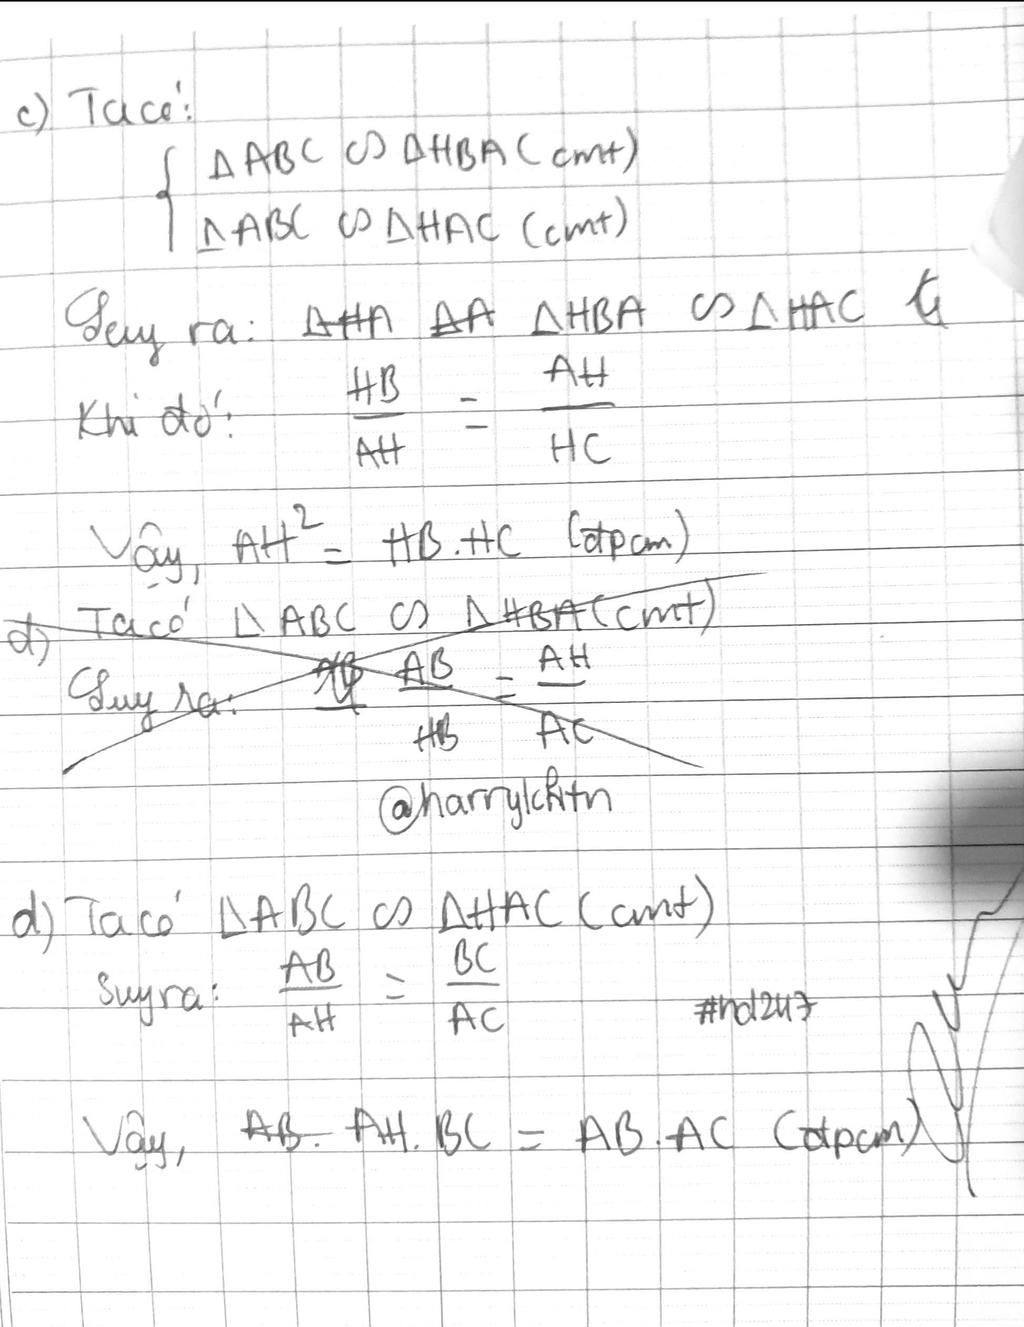 c) Ta có:
ΔABC ∽ ΔHBA (cmt)
ΔABC ∽ ΔHAC (cmt)
Suy ra: ΔHA ΔA ΔHBA ∽ ΔHAC
Khi đó: HB/AH = AH/HC
Vậy, AH² = HB.HC (đpcm)
d) Ta có ΔABC ∽ ΔHBA (cmt)
Suy ra: AB/HB = AH/AC
@harrylchtn
d) Ta có ΔABC ∽ ΔHAC (cmt)
Suy ra: AB/AH = BC/AC
#hd247
Vậy, AB. AH.BC = AB.AC (đpcm)